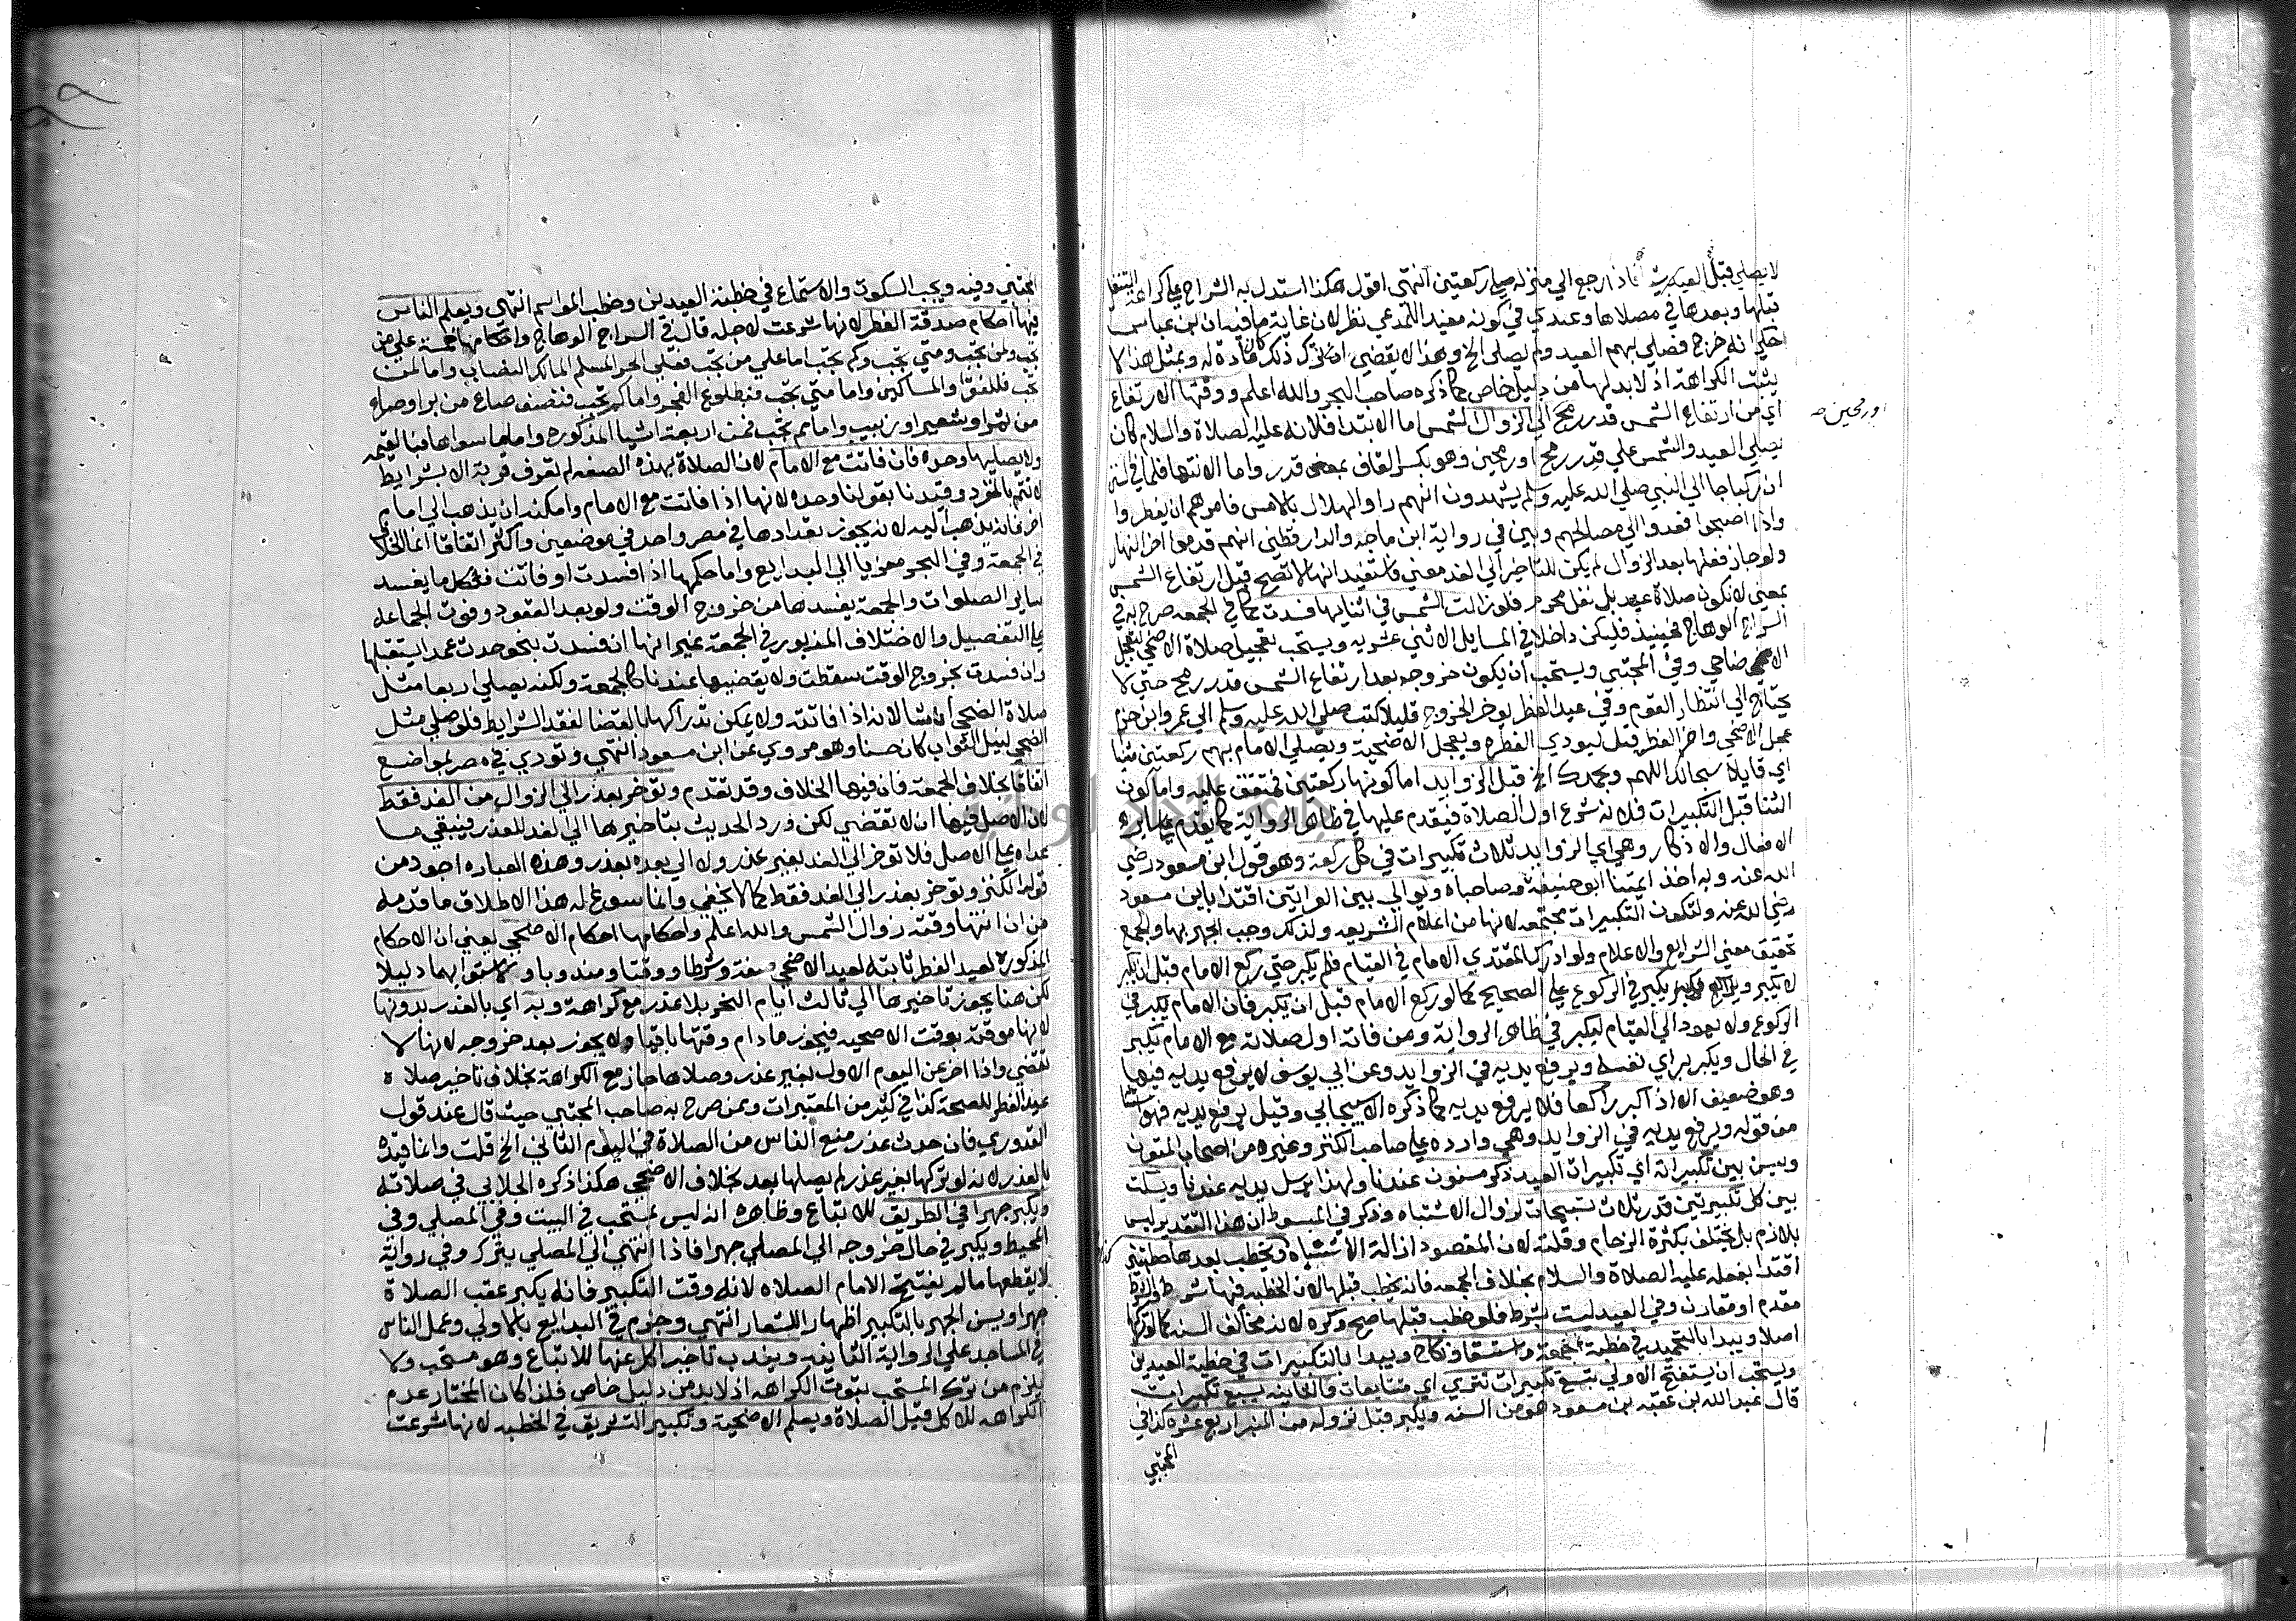 لا يصلي قبل العيد شيأ فاذا رجع الي منزله صلي ركعتين انتهي اقول هكذا استدل به الشراح علي كراهة التنفل
قبلها وبعدها في مصلاها وعندي في كونه مفيد المدعي نظر لان غاية ما فيه ان ابن عباس
حكي انه خرج فصلي بهم العيد ولم يصلي الخ وهذا لا يقضي ان ترك ذلك كان عادة له وبمثل هذا لا
يثبت الكراهة اذ لا بد لها من دليل خاص كما ذكره صاحب البحر والله اعلم ووقتها الارتفاع
اي من ارتفاع الشمس قدر رمح الي الزوال الشمس اما الابتدا فلانه عليه الصلاة والسلام كان
اورمحين صـ
يصلي العيد والشمس علي قدر رمح اورمحين وهو بكسر القاف بمعني قدر واما الانتها فلما في
ان ركبا جا الي النبي صلي الله عليه وسلم يشهدون انهم راو الهلال بالامس فامرهم ان يفطروا
واذا اصبحوا فغدوا الي مصلاهم وبين في رواية ابن ماجه والدار قطني انهم قدموا اخر النهار
ولو جاز فعلها بعد الزوال لم يكن للتاخير الي الغد معني واستفيد انها لا تصح قبل ارتفاع الشمس
بمعني لا تكون صلاة عيد بل نفل محرم فلو زالت الشمس في اثنايها فسدت كما في الجمعه صرح به في
السراج الوهاج فحينيذ فليكن داخلا في المسايل الاثني عشريه ويستحب تعجيل صلاة الاضحي لتعجل
الاضاحي وفي المجتبي ويستحب ان يكون خروجه بعد ارتفاع الشمس قدر رمح حتي لا
يحتاج الي انتظار القوم وفي عيد الفطر يوخر الخروج قليلا كتب صلي الله عليه وسلم الي عمرو ابن حزم
عجل الاضحي واخر الفطر قيل ليودي الفطره ويعجل الاضحية ويصلي الامام بهم ركعتين مثنيا
اي قايلا سبحانك اللهم وبحمدك الخ قبل الزوايد اما كونها ركعتين فمتفق عليه واما كون
الثنا قبل التكبيرات فلانه شرع اول الصلاة فيقدم عليها في ظاهر الرواية كما يقدم علي ساير
الافعال والاذكار وهي اي الزوايد ثلاث تكبيرات في كل ركعة وهو قول ابن مسعود رضي
الله عنه وبه اخذ ايمتنا ابو حنيفة وصاحباه ويوالي بين القراتين اقتدا بابن مسعود
رضي الله عنه ولتكون التكبيرات مجتمعه لانها من اعلام الشريعه ولذلك وجب الجهر بها والجمع
تحقيق معني الشرايع والاعلام ولو ادرك المقتدي الامام في القيام فلم يكبر حتي ركع الامام قبل ان يكبر
لا يكبر ويركع يكبر في الركوع علي الصحيح كما لو ركع الامام قبل ان يكبر فان الامام يكبر في
الركوع ولا يعود الي القيام ليكبر في ظاهر الرواية ومن فاته اول صلاته مع الامام يكبر
في الحال ويكبر براي نفسه ويرفع يديه في الزوايد وعن ابي يوسف لا يرفع يديه فيها
وهو ضعيف الا اذا كبر راكعا فلا يرفع يديه كما ذكره الاسبيجابي وقيل يرفع يديه فهو استثنا
من قوله ويرفع يديه في الزوايد وهي وارده علي صاحب الكنز وغيره من اصحاب المتون
وليس بين تكبيراته اي تكبيرات العيد ذكر مسنون عندنا ولهذا يرسل يديه عندنا ويسكت
بين كل تكبيرتين قدر ثلاث تسبيحات لزوال الاشتباه وذكر في المبسوط ان هذا التقدير ليس
بلازم بل يختلف بكثرة الزحام وقلته لان المقصود ازالة الاشتباه ويخطب بعدها خطبتين
اقتدا بفعله عليه الصلاة والسلام بخلاف الجمعه فانه يخطب قبلها لان الخطبه فيها شرط والشرط
مقدم او مقارن وفي العيد ليست بشرط فلو خطب قبلها صح وكره لانه مخالف السنه كما لو تركها
اصلا ويبدا بالتحميد في خطبة جمعة واستسقا ونكاح ويبدا بالتكبيرات في خطبة العيدين
ويستحب ان يستفتح الاولي بتسع تكبيرات تتري اي متتابعات والثانيه بسبع تكبيرات
قال عبد الله بن عتبه بن مسعود هو من السنه ويكبر قبل نزوله من المنبر اربع عشره كذا في
المجتبي
المجتبي وفيه ويجب السكوت والاستماع في خطبة العيدين وخطب المواسم انتهي ويعلم الناس
فيها احكام صدقة الفطر لانها شرعت لاجله قال في السراج الوهاج واحكامها خمسة علي من
تجب ولمن تجب ومتي تجب وكم تجب اما علي من تجب فعلي الحر المسلم المالك النصاب واما لمن
تجب فللفقرا والمساكين واما متي تجب فبطلوع الفجر واما كم تجب فنصف صاع من بر او صاع
من تمر او شعير او زبيب واما مم تجب فمن اربعة اشيا المذكوره واما ما سواها فبالقيمه
ولا يصليها وحده فان فاتت مع الامام لان الصلاة بهذه الصفه لم تعرف قربة الا بشرايط
لا تتم بالمنفرد وقيدنا بقولنا وحده لانها اذا فاتت مع الامام وامكنه ان يذهب الي امام
اخر فانه يذهب اليه لانه يجوز تعدادها في مصر واحد في موضعين واكثر اتفاقا انما الخلاف
في الجمعة وفي البحر معزيا الي البدايع واما حكمها اذا فسدت او فاتت فكل ما يفسد
ساير الصلوات والجمعة يفسدها من خروج الوقت ولو بعد القعود وفوت الجماعه
علي التفصيل والاختلاف المذبور في الجمعة غير انها ان فسدت بنحو حدث عمد استقبلها
وان فسدت بخروج الوقت سقطت ولا يقضيها عندنا كالجمعة ولكنه يصلي اربعا مثل
صلاة الضحي ان شا لانه اذا فاتته ولا يمكن تداركها بالقضا لفقد الشرايط فلو صلي مثل
الضحي لنيل الثواب كان حسنا وهو مروي عن ابن مسعود انتهي وتودي في مصر بمواضع
اتفاقا بخلاف الجمعة فان فيها الخلاف وقد تقدم وتوخر بعذر الي الزوال من الغد فقط
لان الاصل فيها ان لا تقضي لكن ورد الحديث بتاخيرها الي لغد للعذر فيبقي ما
عداه علي الاصل فلا توخر الي الغد بغير عذر ولا الي بعده بعذر وهذه العباره اجود من
قول الكنز وتوخر بعذر الي الغد فقط كما لا يخفي وانما سوغ له هذا الاطلاق ما قدمه
من ان انتها وقته زوال الشمس والله اعلم واحكامها احكام الاضحي يعني ان الاحكام
المذكورة لعيد الفطر ثابته لعيد الاضحي صفة وشرطا ووقتا ومندوبا ولاستوايهما دليلا
لكن هنا يجوز تاخيرها الي ثالث ايام النحر بلا عذر مع كراهة وبه اي بالعذر بدونها
لانها موقتة بوقت الاضحيه فيجوز ما دام وقتها باقيا ولا يجوز بعد خروجه لانها لا
تقضي واذا اخر عن اليوم الاول بغير عذر وصلاها جاز مع الكراهة بخلاف تاخير صلاة
عيد الفطر للصحة كذا في كثير من المعتبرات وممن صرح به صاحب المجتبي حيث قال عند قول
القدوري فان حدث عذر منع الناس من الصلاة في اليوم الثاني الخ قلت وانما قيده
بالعذر لانه لو تركها بغير عذر لم يصلها بعد بخلاف الاضحي هكذا ذكره الجلابي في صلاته
ويكبر جهرا في الطريق للاتباع وظاهره انه ليس بمستحب في البيت وفي المصلي وفي
المحيط ويكبر في حال خروجه الي المصلي جهرا فاذا انتهي الي المصلي يترك وفي رواية
لا يقطعها مالم يفتتح الامام الصلاه لانه وقت التكبير فانه يكبر عقب الصلاة
جهرا ويسن الجهر بالتكبير اظهارا للشعار انتهي وجزم في البدايع بالاولي وعمل الناس
في المساجد علي الرواية الثانيه ويندب تاخير اكل عنها للاتباع وهو مستحب ولا
يلزم من ترك المستحب ثبوت الكراهه اذ لا بد من دليل خاص فلذا كان المختار عدم
الكراهه للاكل قبل الصلاة ويعلم الاضحية وتكبير التشريق في الخطبه لانها شرعت